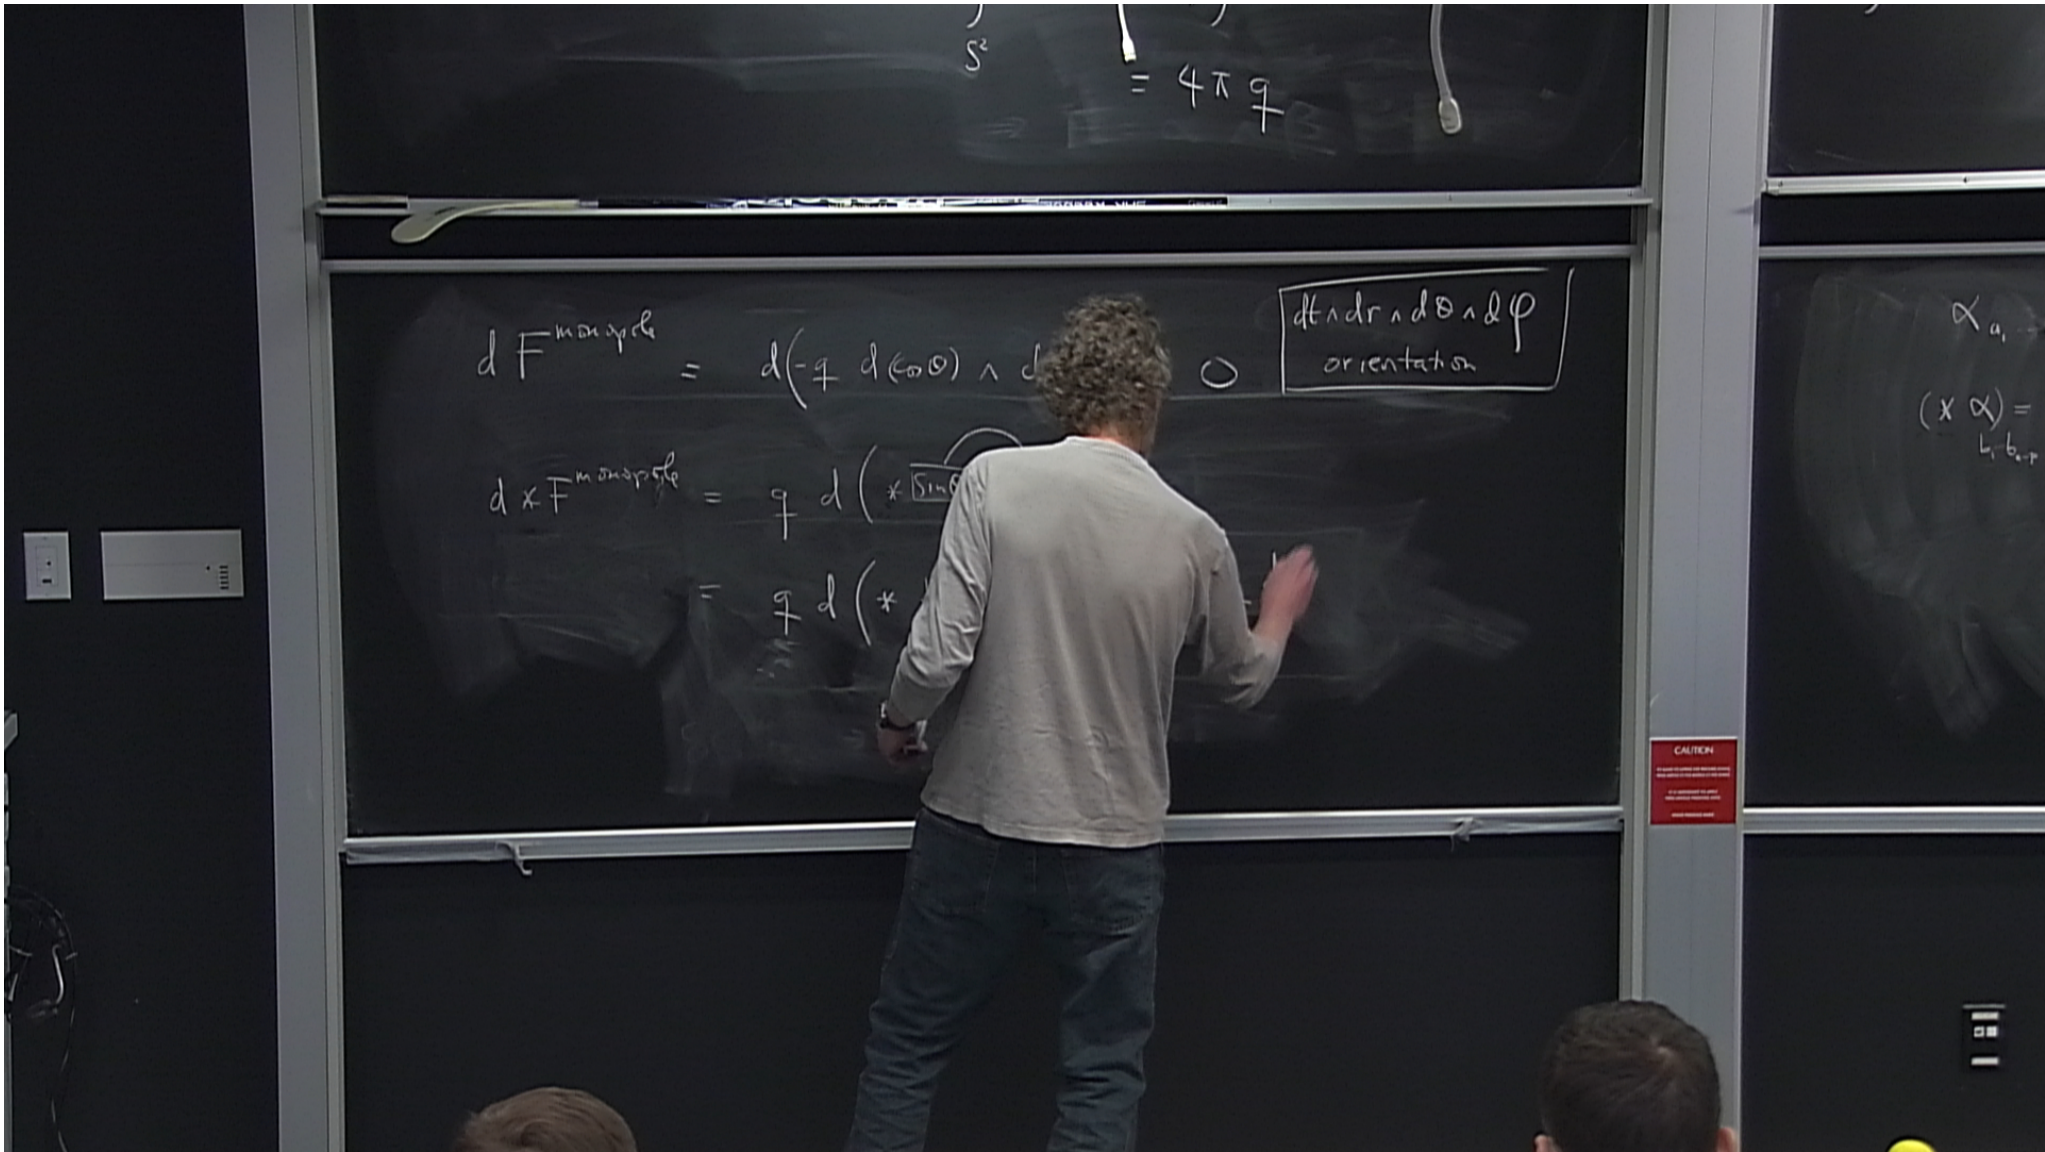 S²
= 4π q
d F^monopole = d(-q d(cosθ) ∧ d 0
dt∧dr∧dθ∧dφ
orientation
d * F^monopole = q d ( * Sinθ
= q d ( *
α a₁
(* α) =
b₁-bₙ₋ₚ
CAUTION